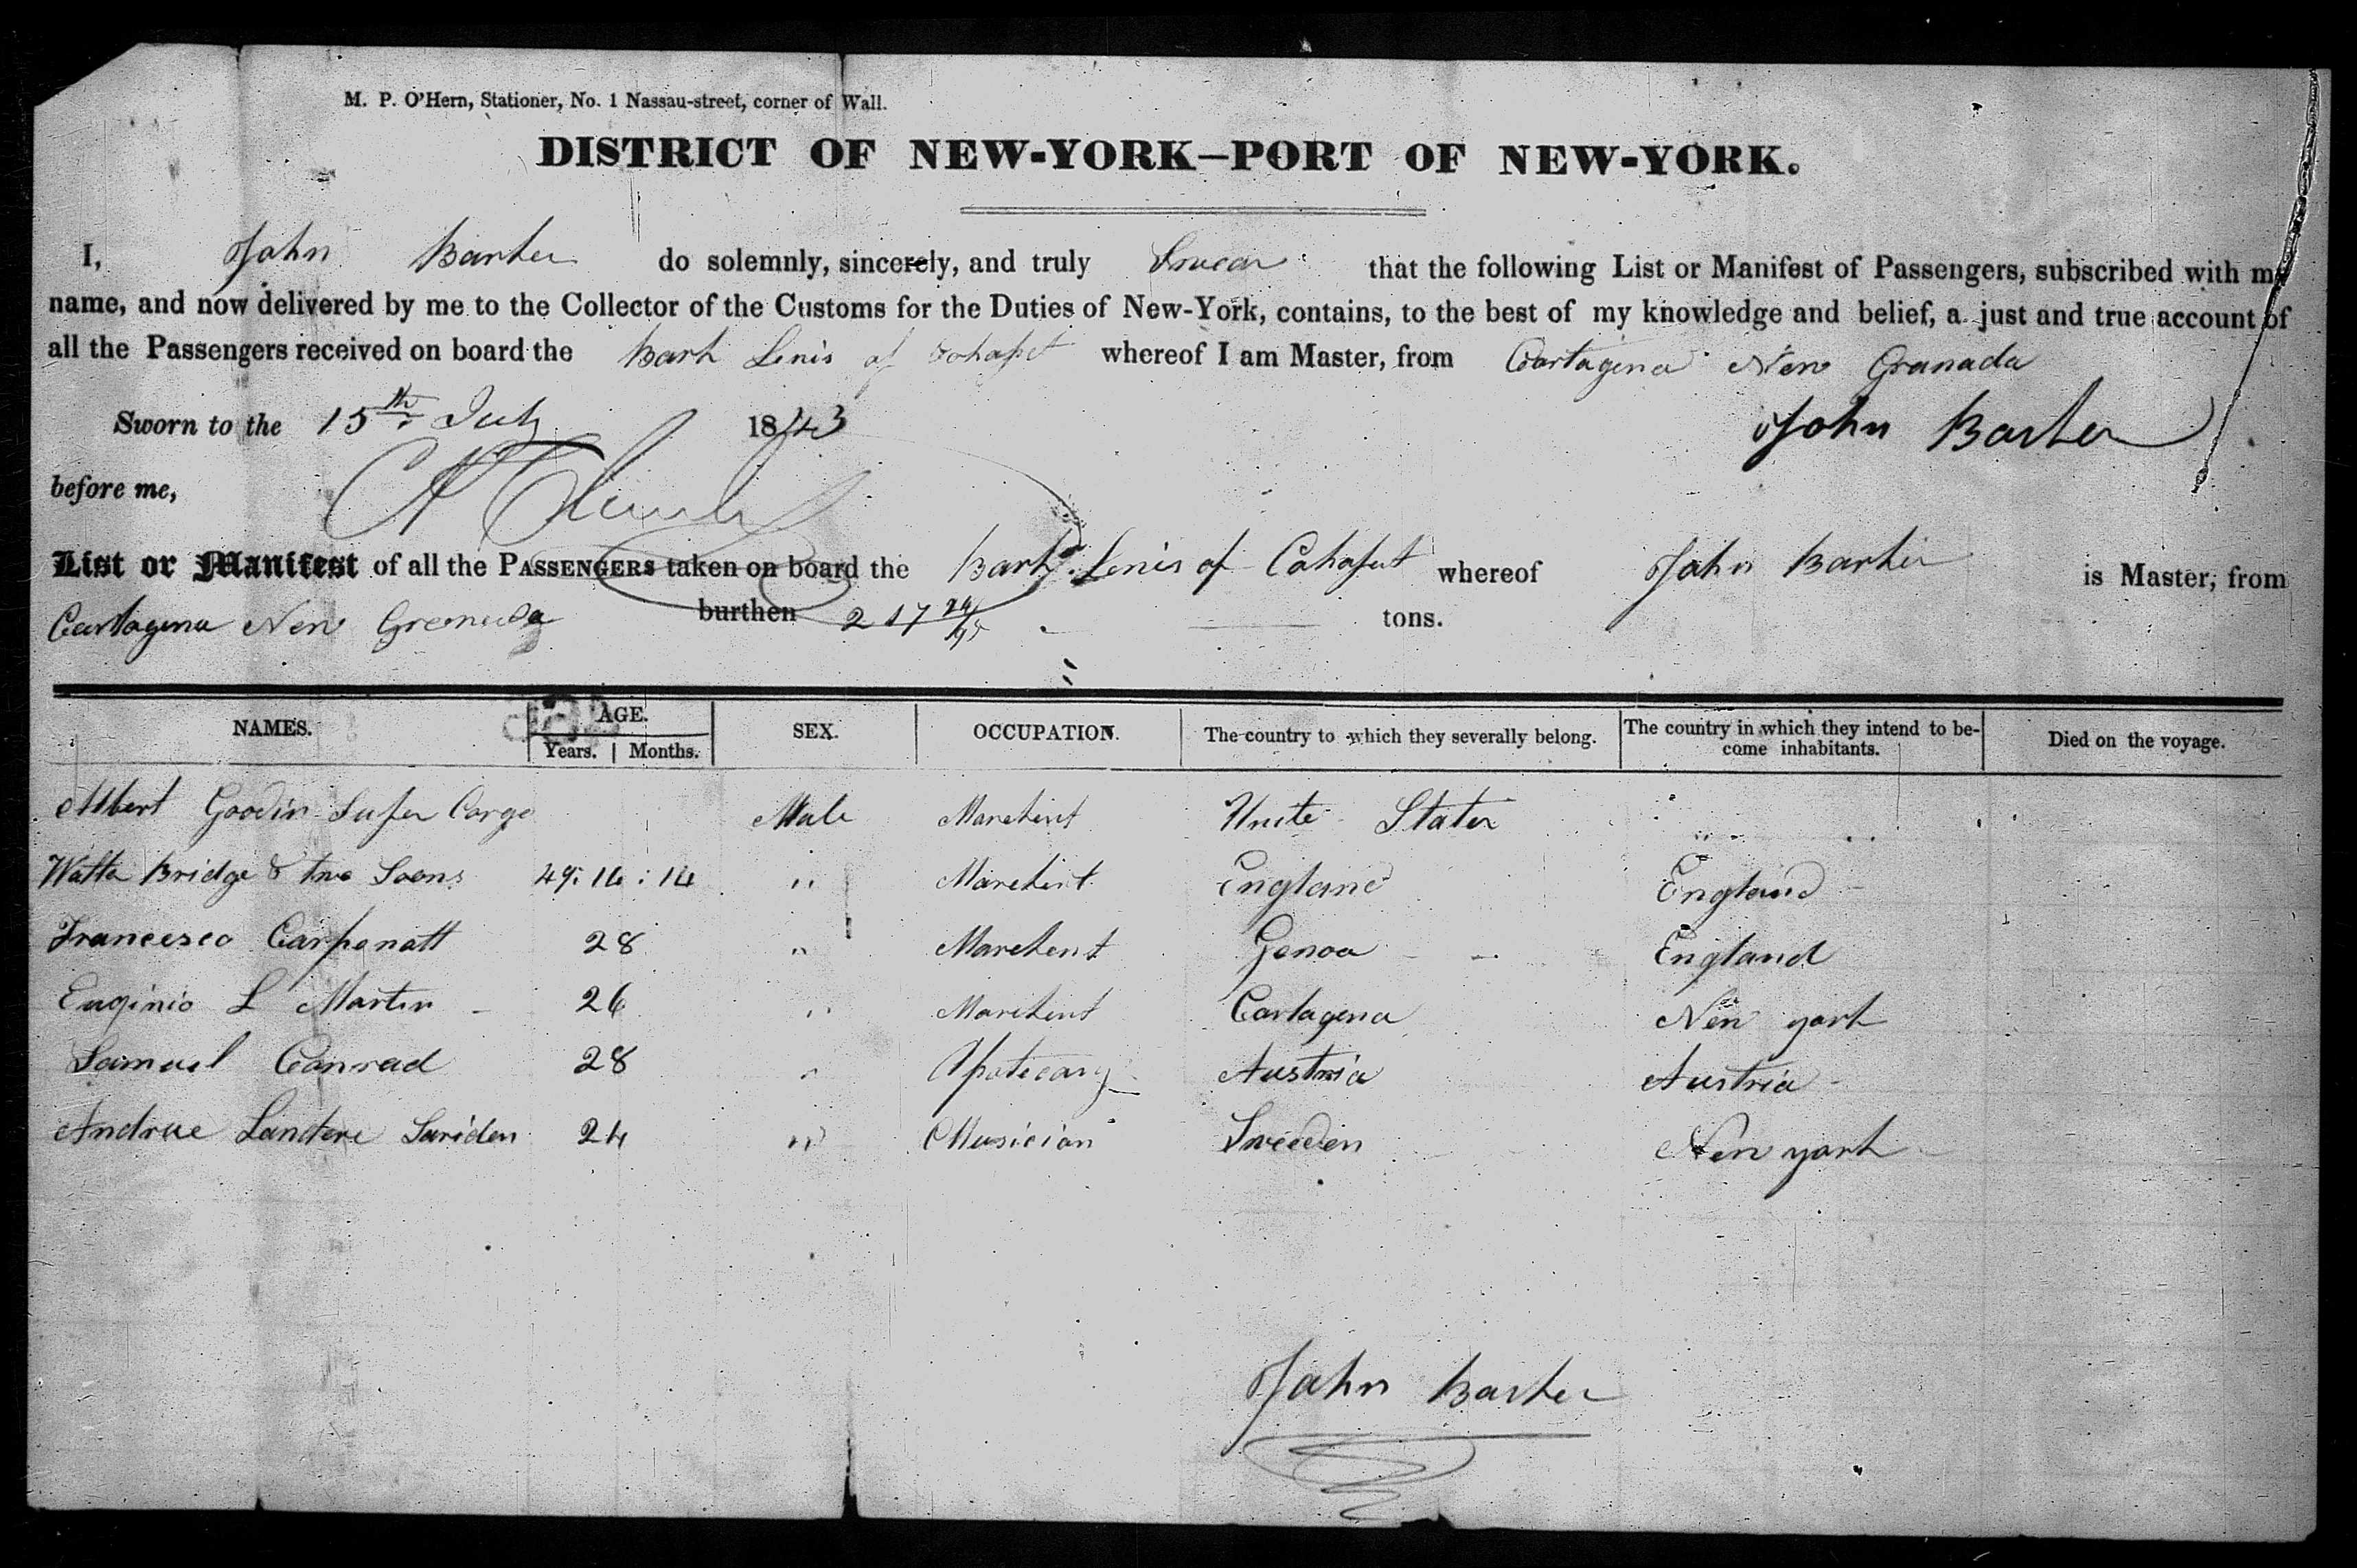 M. P. O'Hern, Stationer, No. 1 Nassau-street, corner of Wall.
DISTRICT OF NEW-YORK—PORT OF NEW-YORK.
I, John Barker do solemnly, sincerely, and truly Swear that the following List or Manifest of Passengers, subscribed with my
name, and now delivered by me to the Collector of the Customs for the Duties of New-York, contains, to the best of my knowledge and belief, a just and true account of
all the Passengers received on board the Bark Lenis of whereof I am Master, from Cartagena New Granada
Sworn to the 15th July 1843 John Barker
before me,
List or Manifest of all the PASSENGERS taken on board the Bark Lenis of Cohaset whereof John Barker is Master, from
Cartagena New Grenada burthen 217 tons.
NAMES. AGE. SEX. OCCUPATION. The country to which they severally belong. The country in which they intend to be-
come inhabitants. Died on the voyage.
Years. Months.
Albert Goodin Super Cargo Male Marchent Unite States
Watter Bridge & two Soons 49: 16: 14 " Marchent England England
Francesco Carpanatt 28 " Marchent Genoa England
Euginio L Martin 26 " Marchent Cartagena New york
Samuel Conrad 28 " Apotecary Austria Austria
Andrue Landere 24 " Musician Sweeden New york
John Barker